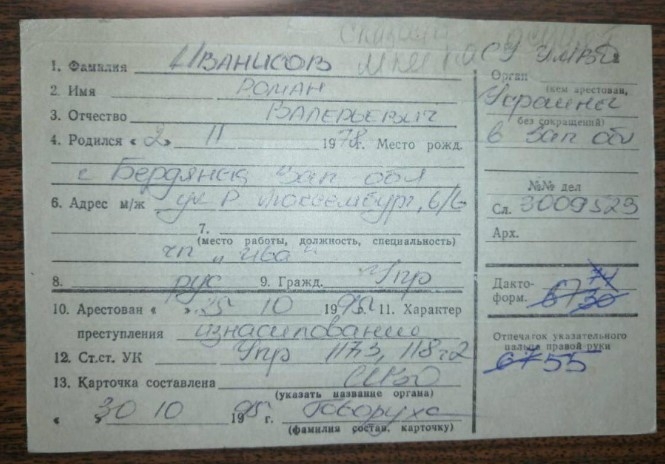 1. Фамилия Иванисов
2. Имя Роман
3. Отчество Валерьевич
4. Родился « 2 » 11 1978 г. Место рожд.
г. Бердянск Зап обл
6. Адрес м/ж ул Р Люксембург, 6/6
7.
(место работы, должность, специальность)
чп „Ива"
8. рус 9. Гражд. Укр
10. Арестован « 25 10 1995 г. 11. Характер
преступления изнасилование
12. Ст.ст. УК Укр 117 3, 118 ч2
13. Карточка составлена
(указать название органа)
« 30 10 1995 г. Говоруха
(фамилия состав. карточку)
УМВД
Орган
(кем арестован,
Украины
без сокращений)
в Зап обл
№№ дел
Сл. 3009529
Арх.
Дакто-
форм. 6730
Отпечаток указательного
пальца правой руки
6755